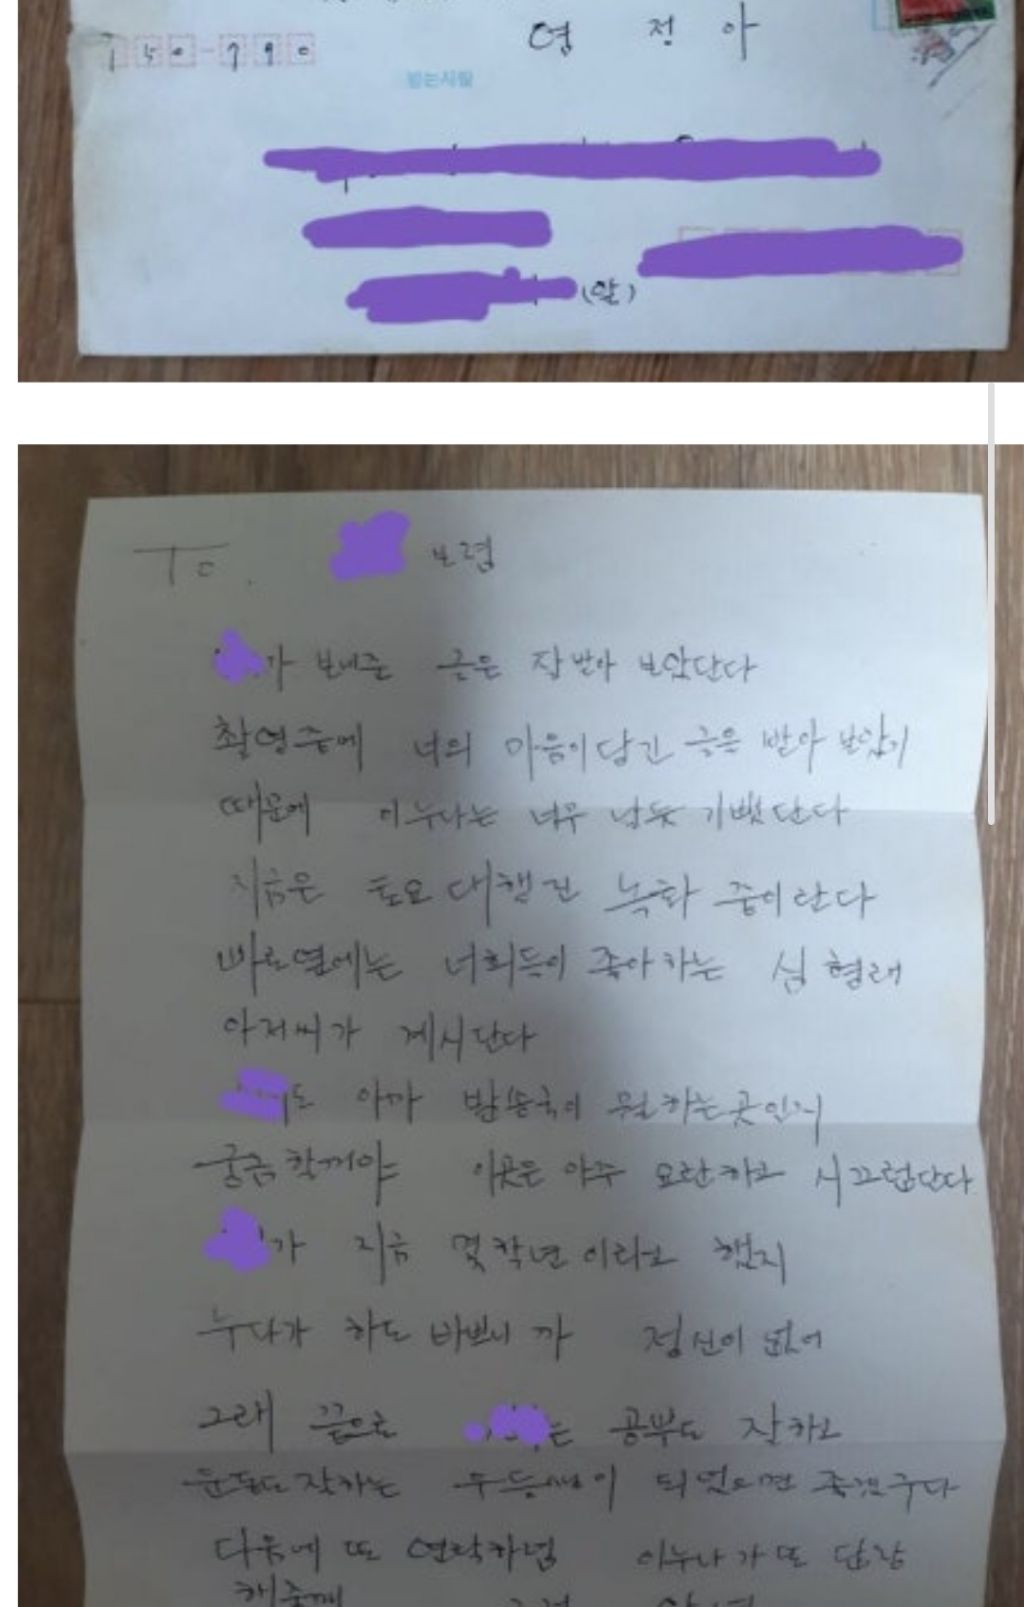 150-790
염 정 아
받는사람
(앞)
To. 보렴
가 보내준 글은 잘 받아 보았단다
촬영중에 너의 마음이 담긴 글을 받아 보았기
때문에 이 누나는 너무 남듯 기뻤단다
지금은 토요 대행진 녹화 중이란다
바로 옆에는 너희들이 좋아하는 심형래
아저씨가 계시단다
도 아마 방송국이 뭘 하는 곳인지
궁금할꺼야 이곳은 아주 요란하고 시끄럽단다
가 지금 몇학년 이라고 했지
누나가 하도 바쁘니까 정신이 없어
그래 끝으로 는 공부도 잘하고
운동도 잘하는 우등생이 되었으면 좋겠구나
다음에 또 연락하렴 이 누나가 또 답장
해줄께 안녕